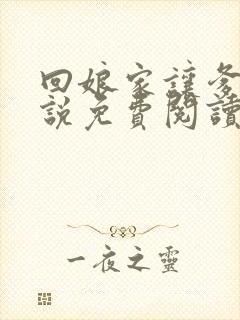 回娘家讓爹
說免費閱讀
一夜之靈